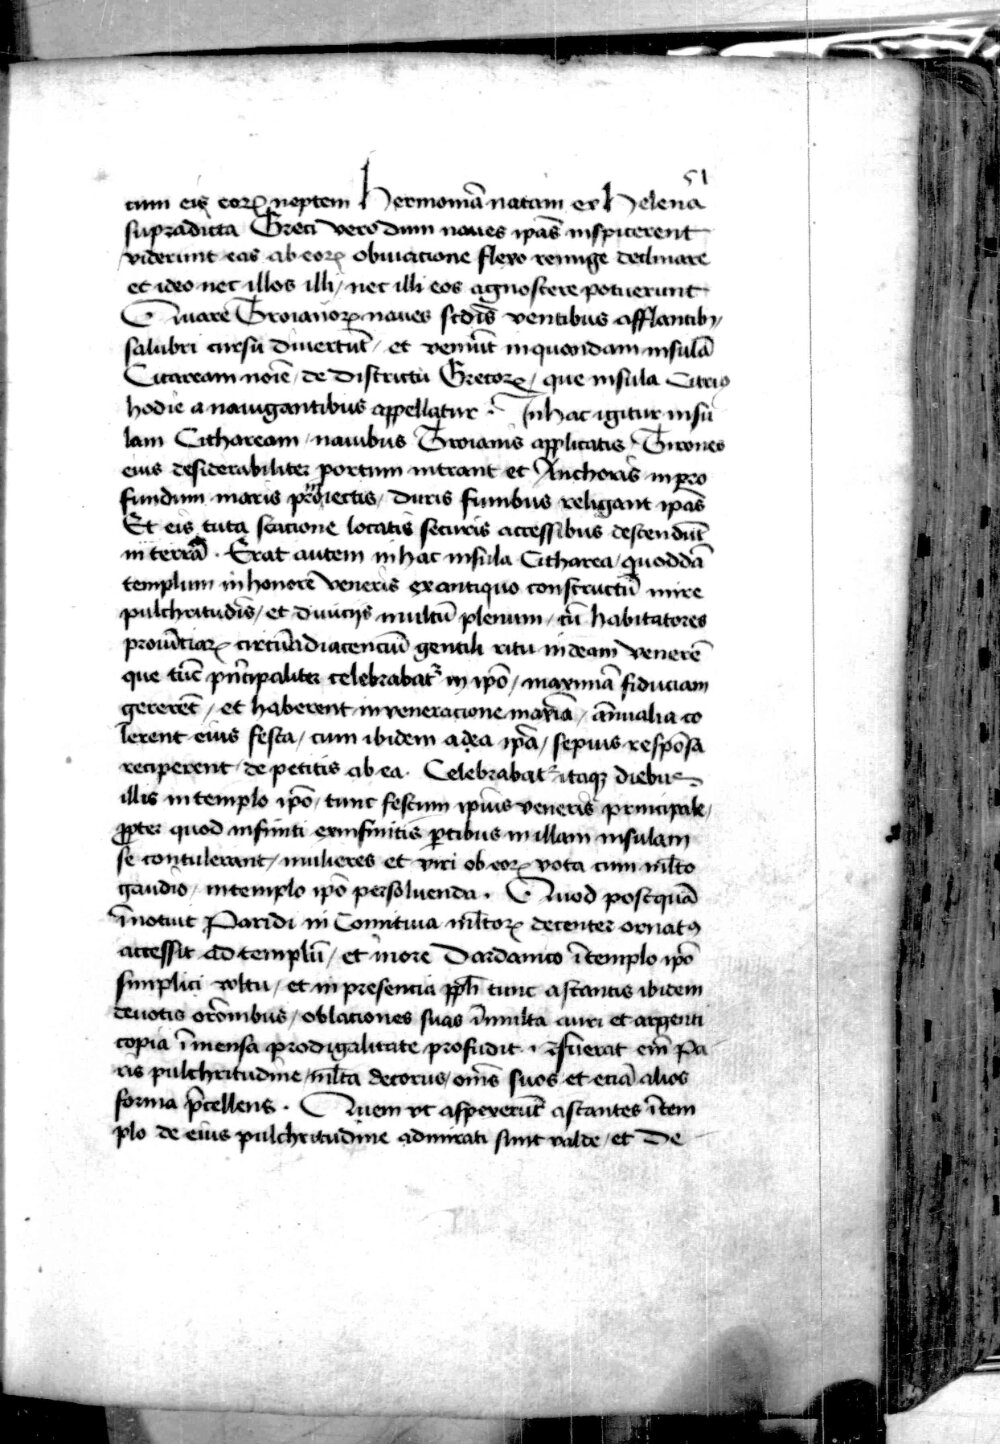 51
cum eis eorꝝ neptem Hermoniā natam ex Helena
supradicta Greci vero dum naues ip̄as inspicerent
viderunt eas ab eorꝝ obuiacione flexo remige declinare
et ideo nec illos illi / nec illi eos agnoscere potuerunt
Quare Troianorꝝ naues scdīs ventibus afflantibꝫ
salubri cursu diuertūt / et veniūt in quandam insulā
Citaream noīe / de districtu Grecorꝝ / que insula Citriꝰ
hodie a nauigantibus appellatur . In hac igitur insu
lam Cithaream / nauibus Troianis applicatis / Tirones
eius desiderabiliter portum intrant et Anchoris in pro
fundum maris proiectis / duris funibus religant ip̄as
Et eis tuta stacione locatis securis accessibus descendūt
in terrā . Erat autem in hac insula Citharea / quoddā
templum in honorē veneris ex antiquo constructū mire
pulchritudīs / et diuicijs multū plenum / cū habitatores
prouīciarꝝ circūadiacenciū gentili ritu in deam venerē
que tūc pn̄cipaliter celebrabatr̄ in ip̄o / maximā fiduciam
gererēt / et haberent in veneracione maxīā / annualia co
lerent eius festa / cum ibidem a dea ip̄a / sepius respōsa
reciperent / de petitis ab ea . Celebrabatr̄ itaqꝫ diebus
illis in templo ip̄o / tunc festum ip̄ius veneris principale /
ꝓpter quod infiniti ex infinitis ꝑtibus in illam insulam
se contulerant / mulieres et viri ob eorꝝ vota cum ml̄to
gaudio / in templo ip̄o persoluenda . Quod postquā
īnotuit Paridi in Comitiua ml̄torꝝ decenter ornatꝰ
accessit ad templū / et more Dardanico ī templo ip̄o
simplici voltu / et in presencia ppl̄i tunc astantis ibidem
deuotis orōnibus / oblationes suas ī multa auri et argenti
copia īmensa prodigalitate profudit . fuerat em̄ Pa
ris pulchritudine / ml̄ta decorus / om̄s suos et eciā alios
forma p̄cellens . Quem vt aspexerūt astantes ī tem
plo de eius pulchritudine admirati sunt valde / et De